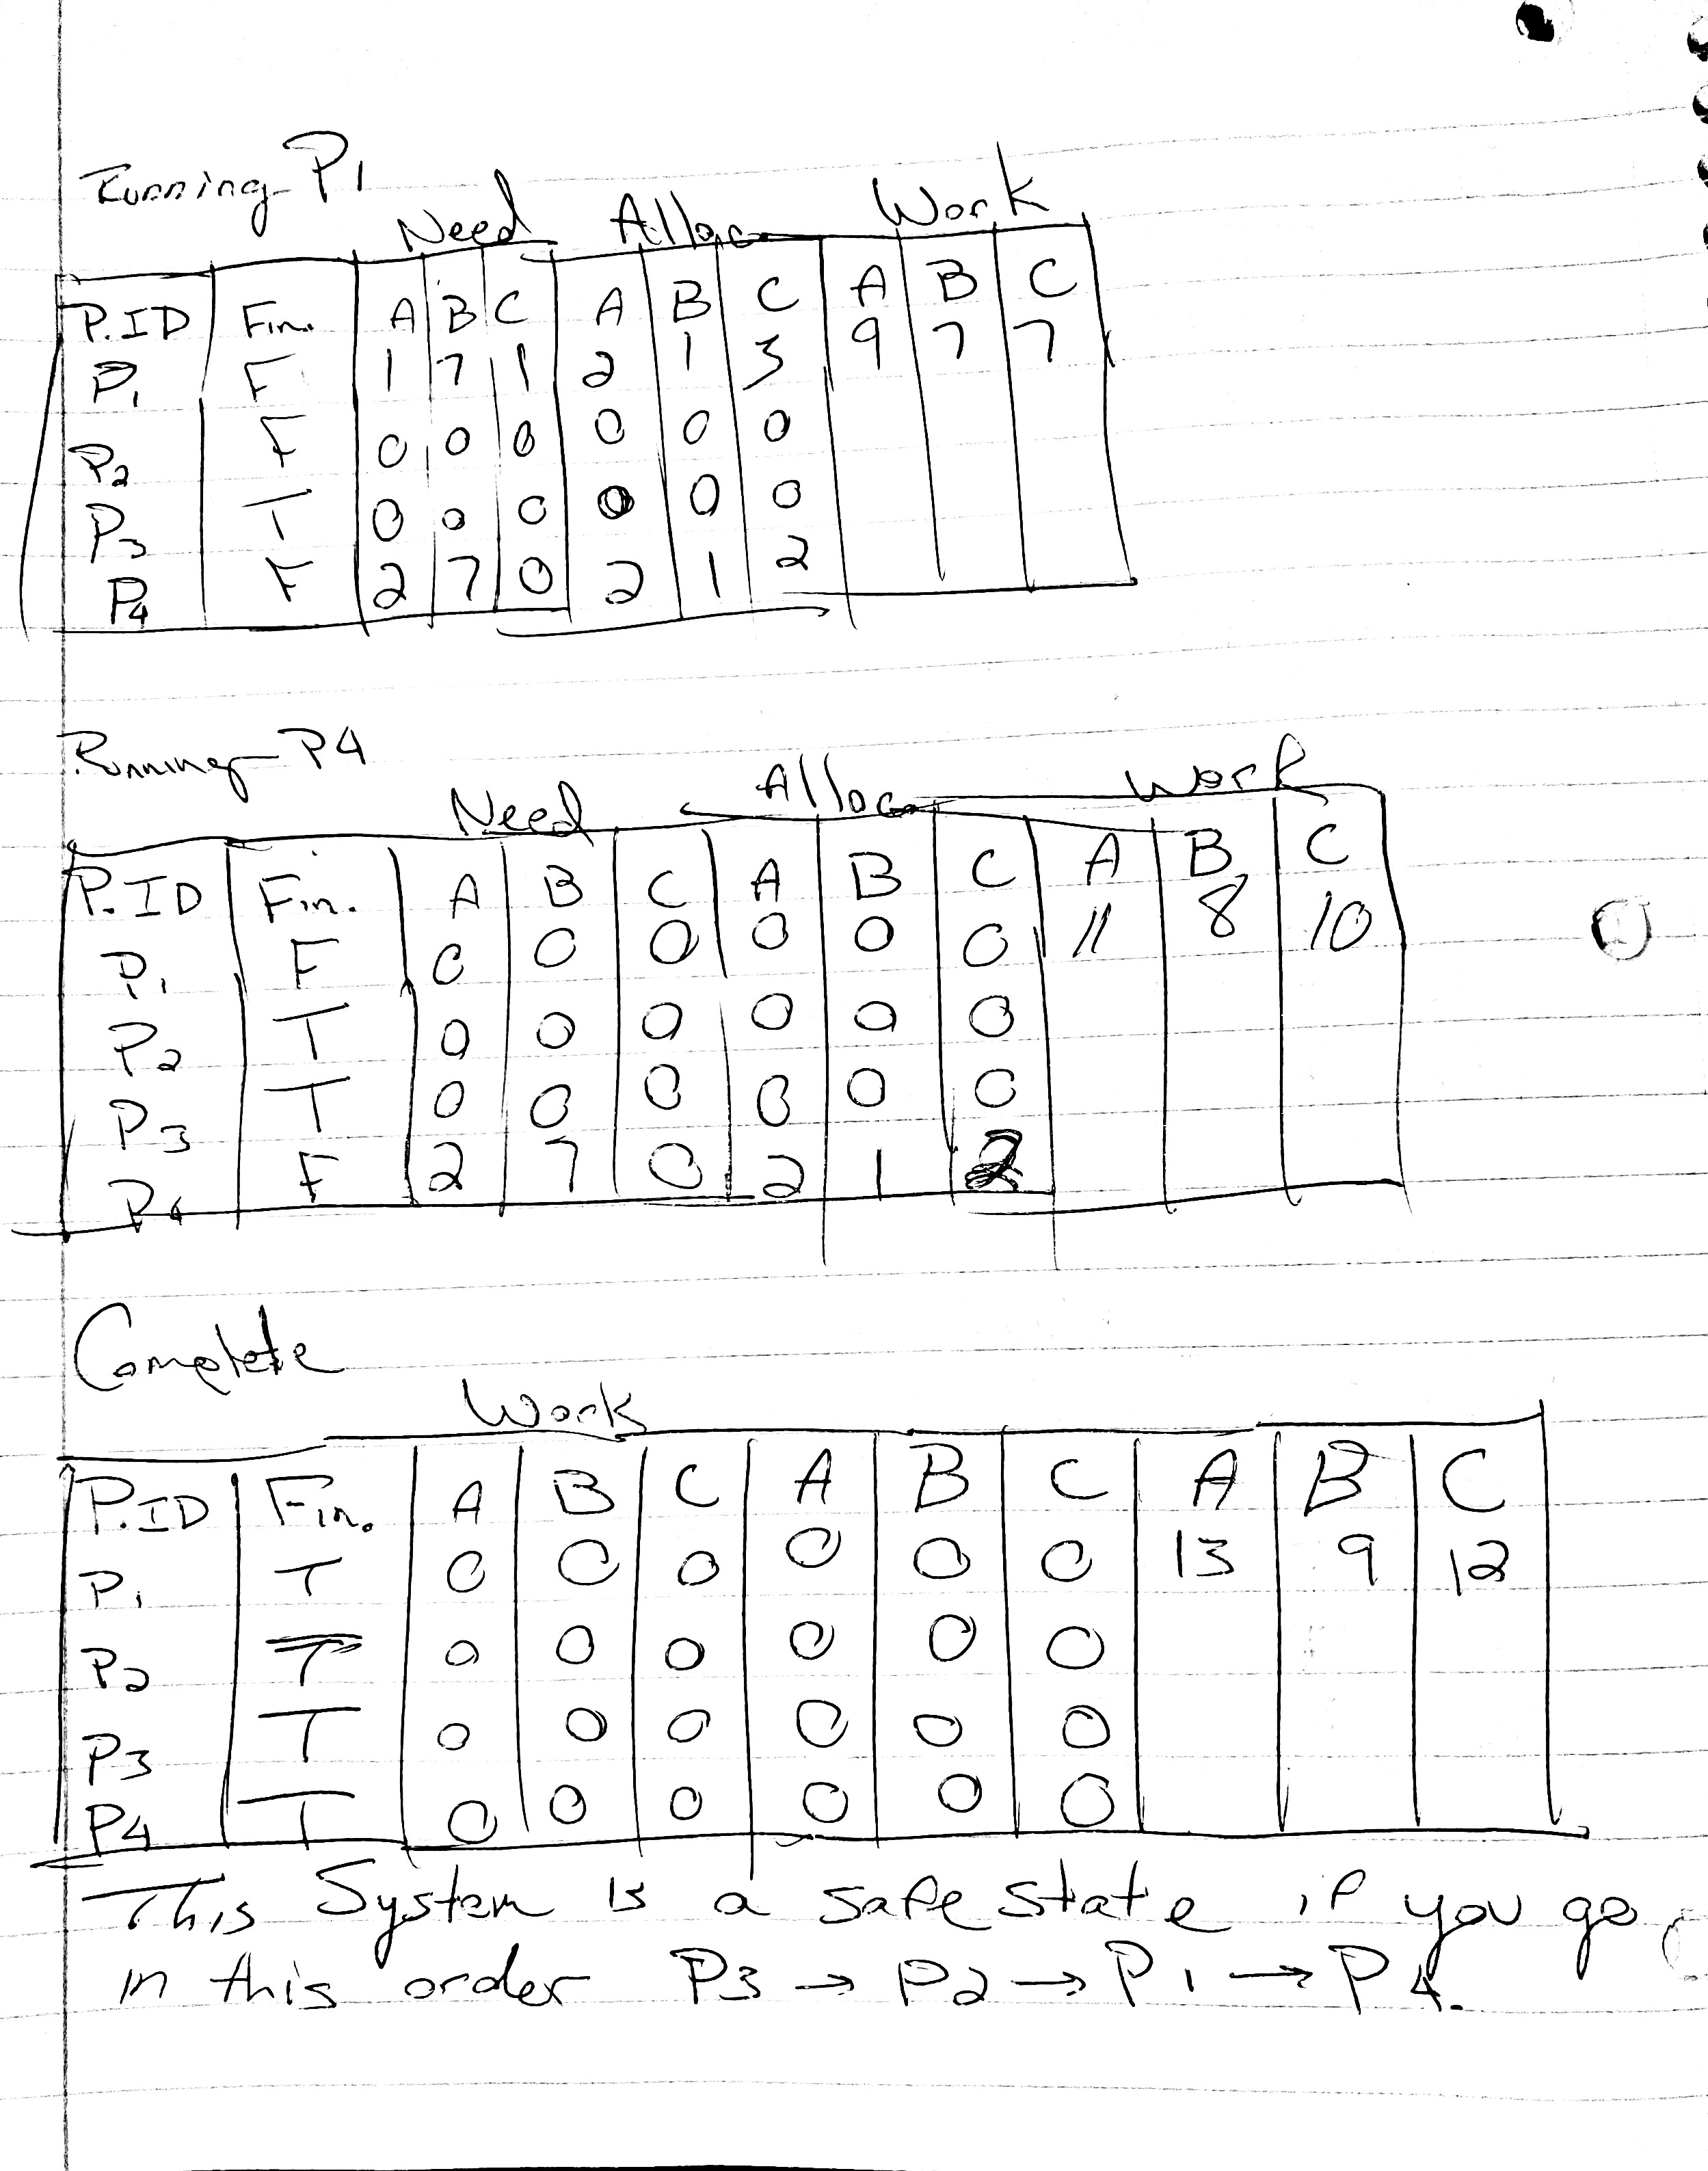 Running P1
Need Alloc Work
P.ID Fin. A B C A B C A B C
P1 F 1 7 1 2 1 3 9 7 7
P2 F 0 0 0 0 0 0
P3 T 0 0 0 0 0 0
P4 F 2 7 0 2 1 2
Running P4
Need Alloc Work
P.ID Fin. A B C A B C A B C
P1 F 0 0 0 0 0 0 11 8 10
P2 T 0 0 0 0 0 0
P3 T 0 0 0 0 0 0
P4 F 2 7 0 2 1 2
Complete
Work
P.ID Fin. A B C A B C A B C
P1 T 0 0 0 0 0 0 13 9 12
P2 T 0 0 0 0 0 0
P3 T 0 0 0 0 0 0
P4 T 0 0 0 0 0 0
This System is a safe state if you go
in this order P3 → P2 → P1 → P4.